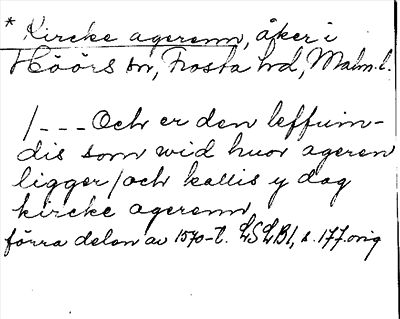 * Kircke agerenn, åker i
Höörs sn, Frosta hd, Malm.l.
/--- Och er den leffuin-
dis som wid huor ageren
ligger / och kallis y dag
kircke agerenn
förra delen av 1570-t. LSLB1, s. 177.orig